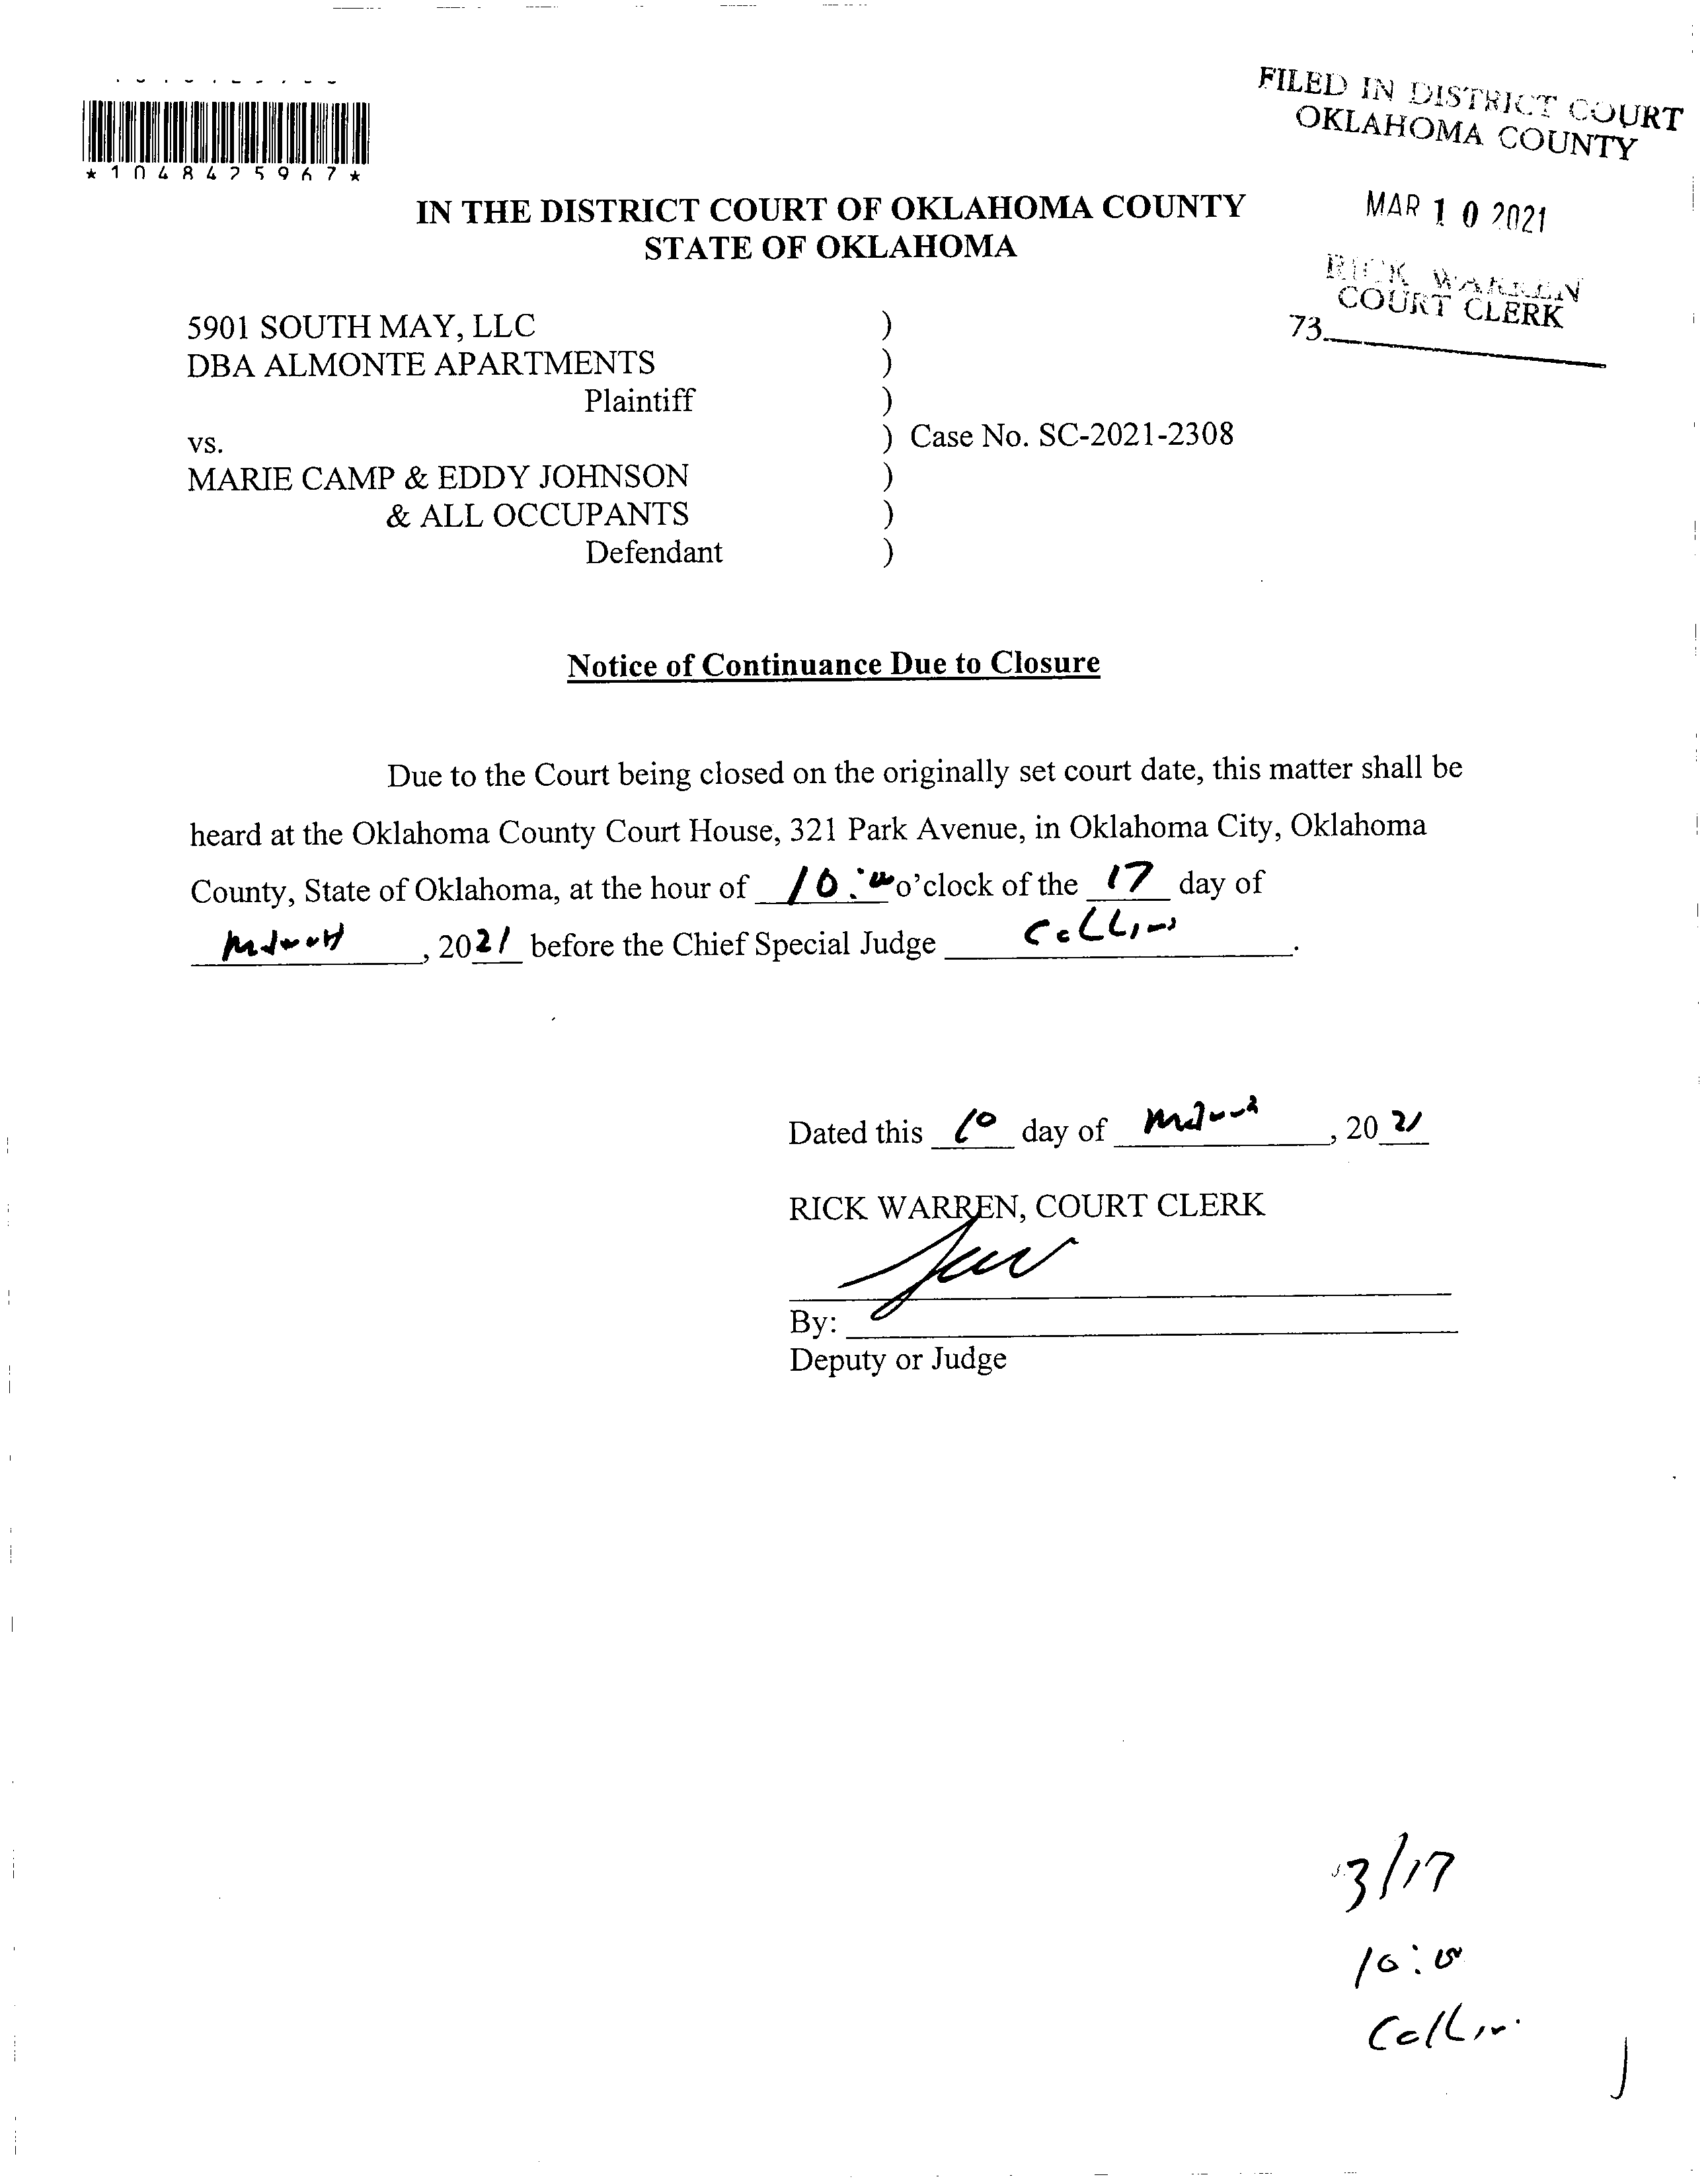 FILED IN DISTRICT COURT
OKLAHOMA COUNTY
*1048425967*
MAR 10 2021
RICK WARREN
COURT CLERK
73
IN THE DISTRICT COURT OF OKLAHOMA COUNTY
STATE OF OKLAHOMA
5901 SOUTH MAY, LLC )
DBA ALMONTE APARTMENTS )
Plaintiff )
vs. ) Case No. SC-2021-2308
MARIE CAMP & EDDY JOHNSON )
& ALL OCCUPANTS )
Defendant )
Notice of Continuance Due to Closure
Due to the Court being closed on the originally set court date, this matter shall be
heard at the Oklahoma County Court House, 321 Park Avenue, in Oklahoma City, Oklahoma
County, State of Oklahoma, at the hour of 10:00 o'clock of the 17 day of
March, 2021 before the Chief Special Judge Collins.
Dated this 10 day of March, 2021
RICK WARREN, COURT CLERK
By:
Deputy or Judge
3/17
10:00
Collins